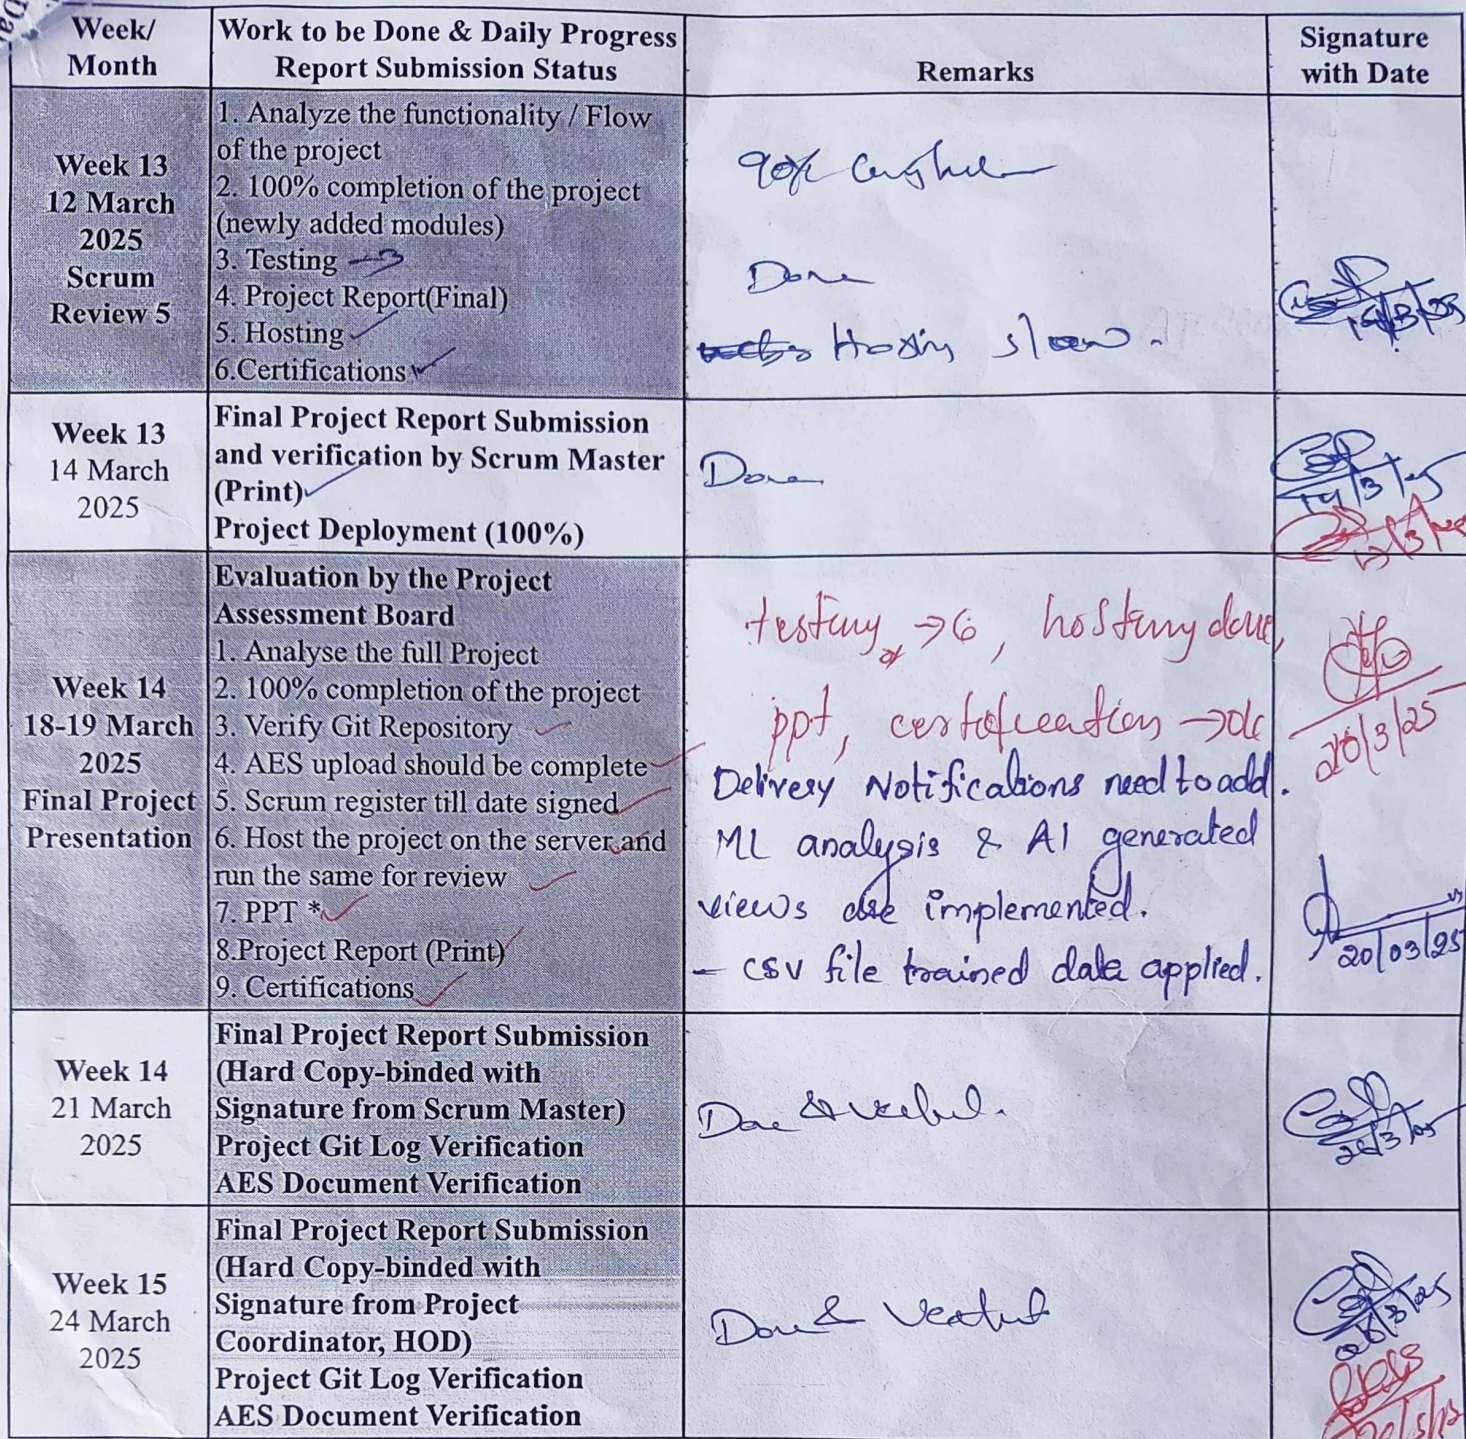 Week/
Month
Work to be Done & Daily Progress
Report Submission Status
Remarks
Signature
with Date
Week 13
12 March
2025
Scrum
Review 5
1. Analyze the functionality / Flow
of the project
2. 100% completion of the project
(newly added modules)
3. Testing
4. Project Report(Final)
5. Hosting
6.Certifications
90%
Done
Hosting slow.
Week 13
14 March
2025
Final Project Report Submission
and verification by Scrum Master
(Print)
Project Deployment (100%)
Done
14/3/25
Week 14
18-19 March
2025
Final Project
Presentation
Evaluation by the Project
Assessment Board
1. Analyse the full Project
2. 100% completion of the project
3. Verify Git Repository
4. AES upload should be complete
5. Scrum register till date signed
6. Host the project on the server and
run the same for review
7. PPT *
8.Project Report (Print)
9. Certifications
testing → 6, hosting done,
ppt, certification →
Delivery Notifications need to add.
ML analysis & AI generated
views are implemented.
- CSV file trained data applied.
20/3/25
20/03/25
Week 14
21 March
2025
Final Project Report Submission
(Hard Copy-binded with
Signature from Scrum Master)
Project Git Log Verification
AES Document Verification
Done &
Week 15
24 March
2025
Final Project Report Submission
(Hard Copy-binded with
Signature from Project
Coordinator, HOD)
Project Git Log Verification
AES Document Verification
Done &